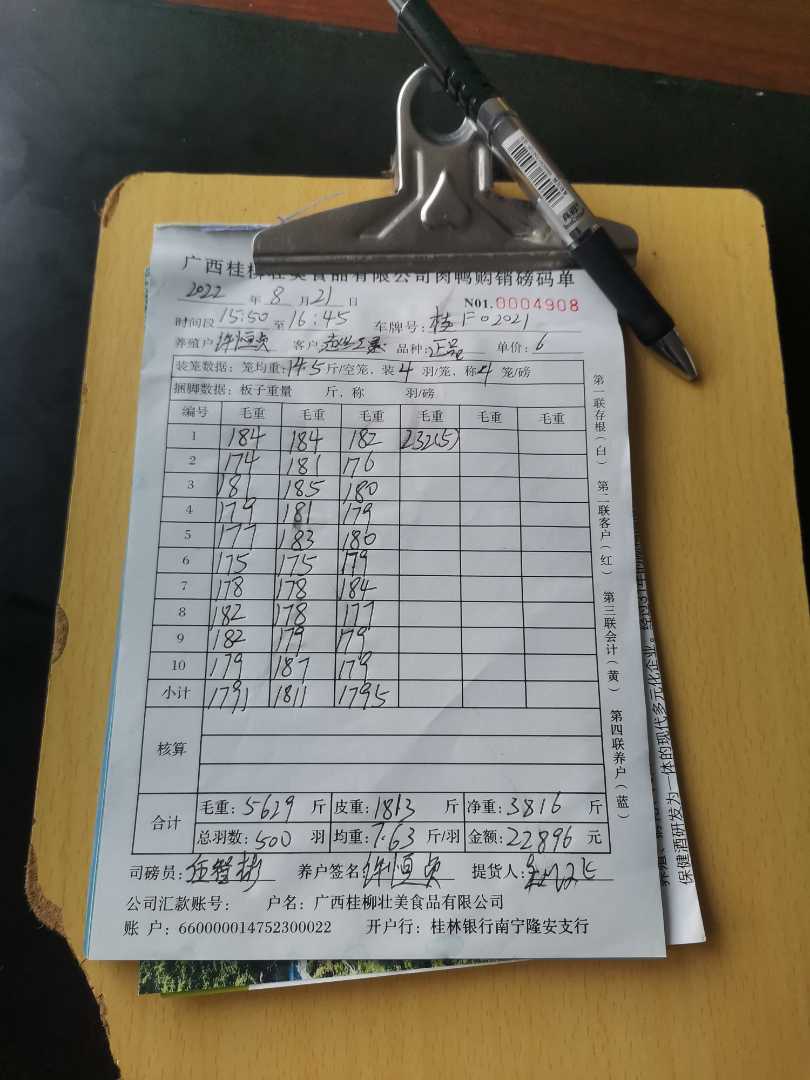 广西桂柳壮美食品有限公司肉鸭购销磅码单
2022 年 8 月 21 日 N01.0004908
时间段 15:50 至 16:45 车牌号: 桂F02021
养殖户 许恒贞 客户 品种: 正品 单价: 6
装笼数据: 笼均重: 14.5 斤/空笼, 装 4 羽/笼, 称 4 笼/磅
捆脚数据: 板子重量 斤, 称 羽/磅
编号 毛重 毛重 毛重 毛重 毛重 毛重
1 184 184 182 232(5)
2 174 181 176
3 181 185 180
4 179 181 179
5 177 183 180
6 175 175 179
7 178 178 184
8 182 178 177
9 182 179 179
10 179 187 179
小计 1791 1811 1795
核算
合计 毛重: 5629 斤 皮重: 1813 斤 净重: 3816 斤
总羽数: 500 羽 均重: 7.63 斤/羽 金额: 22896 元
司磅员: 养户签名: 许恒贞 提货人:
公司汇款账号: 户名: 广西桂柳壮美食品有限公司
账 户: 660000014752300022 开户行: 桂林银行南宁隆安支行
第一联存根(白) 第二联客户(红) 第三联会计(黄) 第四联养户(蓝)
保健酒研发为一体的现代多元化企业。